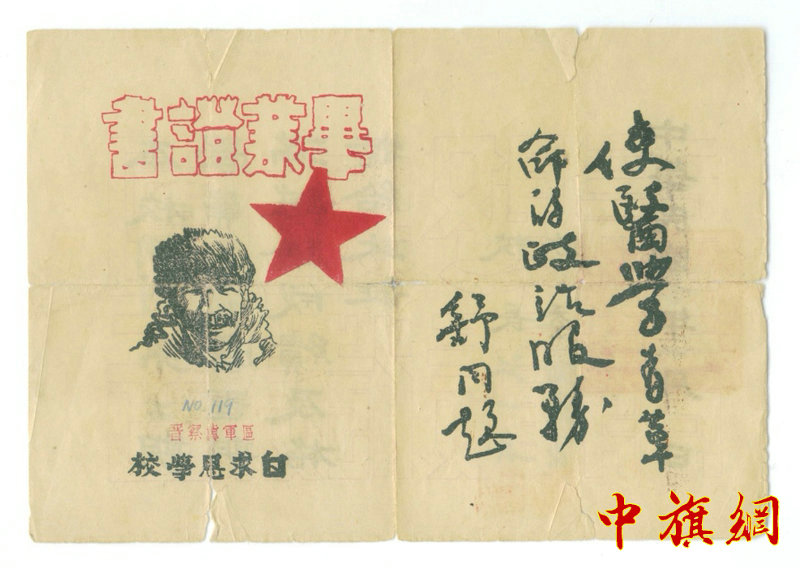 畢業證書
NO 119
晉察冀軍區
白求恩學校
使醫學为革
命的政治服務
舒同題
中旗網